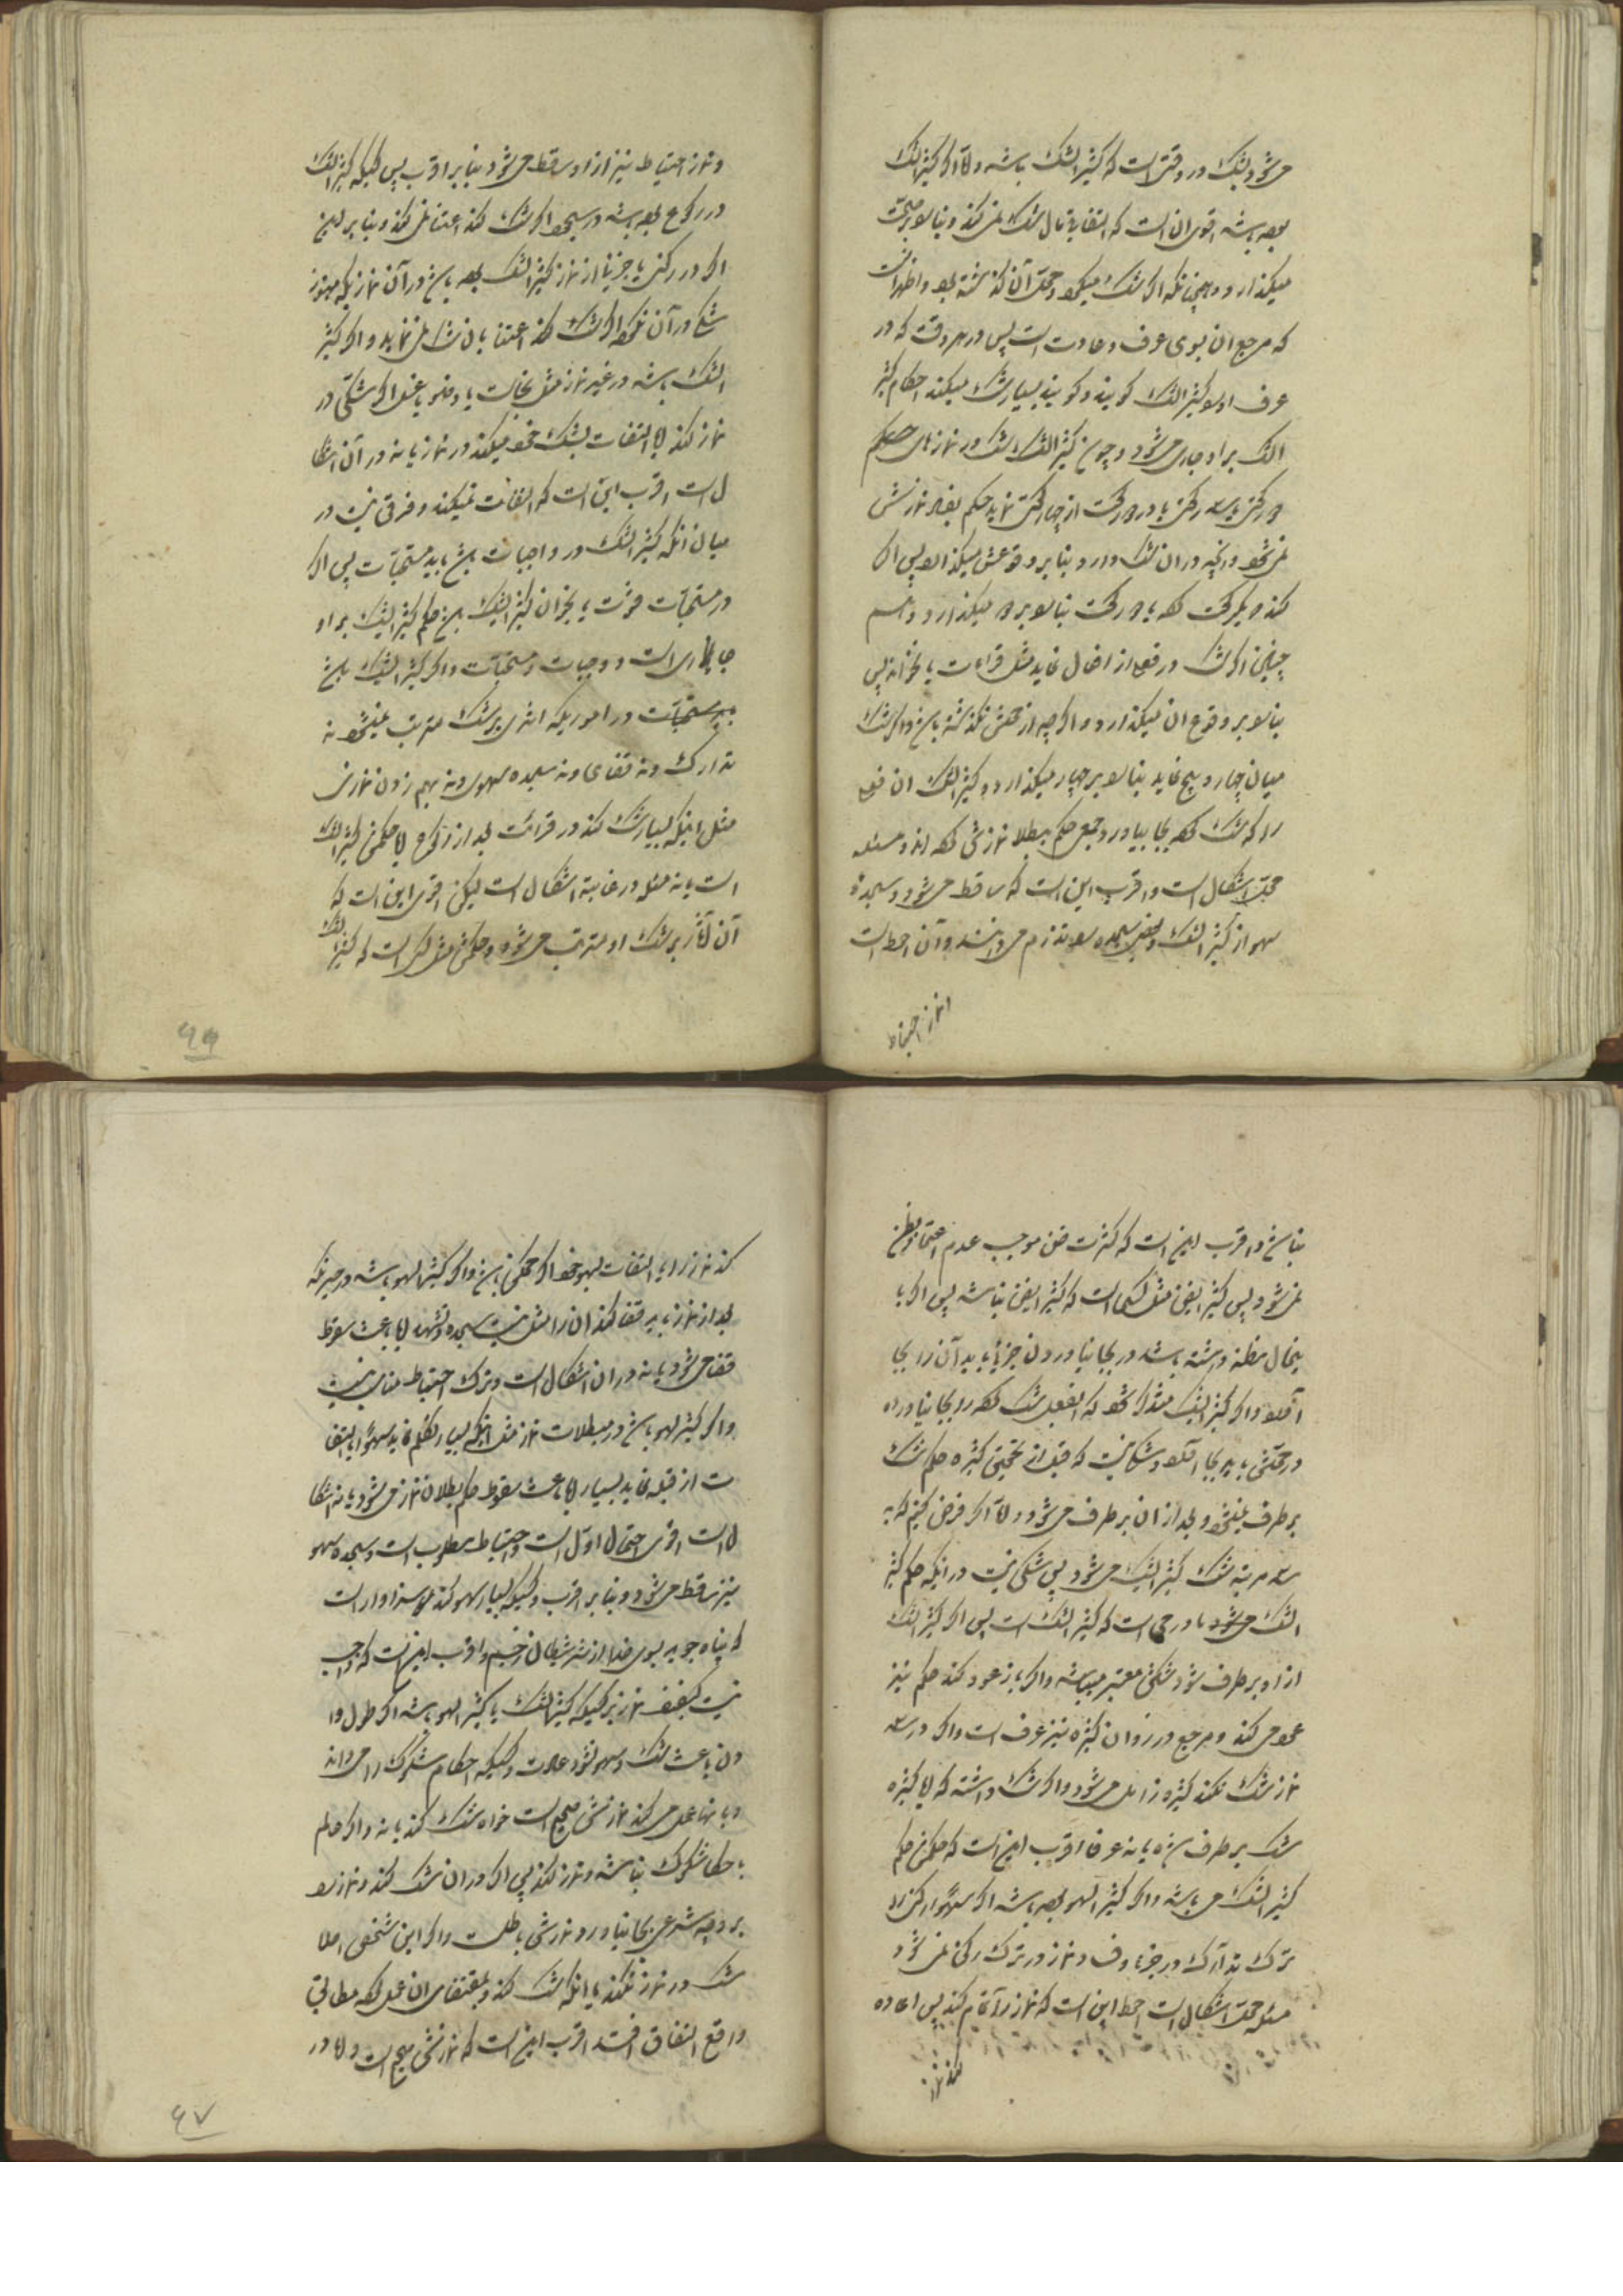 می‌شود بشک در وقتی است که کثیر الشک باشد والا اگر کثیر الشک
بوده باشد اقوی ان است که التفات بآن شک نمی کند و بنا بر صحت
میگذارد و همچنانکه اگر شک میکرد و محل آن گذشته بود و اظهر انست
که مرجع ان بسوی عرف و عادت است پس در هر وقت که در
عرف او را کثیر الشک گویند و گویند بسیار شک میکند احکام کثیر
الشک بر او جاری می‌شود و چون کثیر الشک شک در نمازهای
دو رکعتی یا سه رکعتی یا دو رکعت از چهار رکعتی نماید حکم بفساد نمازش
نمی‌شود و آنچه در ان شک دارد بنا بر وقوعش میگذارد پس اگر
کند که یکرکعت کرده یا دو رکعت بنا را بر دو میگذارد و
چنین اگر شک در فعلی از افعال نماید مثل قراءت یا غیر آن پس
بنا را بر وقوع ان میگذارد و اگر چه از محلش نگذشته باشد و اگر شک
میان چهار و پنج نماید بنا را بر چهار میگذارد و کثیر الشک ان فعلی
را که شک کرده بجا بیاورد جمعی حکم ببطلان نمازش کرده اند و مسئله
محل اشکال است و اقرب این است که ساقط می‌شود سجده
سهو از کثیر الشک و بعضی سجده سهو را لازم می‌دانند و آن احوط است
و نماز احتیاط
و نماز احتیاط نیز از او ساقط می‌شود بنا بر اقرب پس کسیکه کثیر الشک
در رکوع بوده باشد در سجود اگر شک کند اعتنا نمی کند و بنا بر این
اگر در رکنی یا جزئی از نماز کثیر الشک بوده باشد در آن نمازیکه هنوز
شک در آن نکرده اگر شک کند اعتنا بان شک نمی نماید و اگر کثیر
الشک باشد در غیر نماز مثل نجاست یا وضو یا غسل اگر شکی در
نماز کند آیا التفات بشک خود میکند در نماز یا نه در آن اشکا
ل است اقرب این است که التفات نمیکند و فرقی نیست در
میان آنکه کثیر الشک در واجبات باشد یا در مستحبات پس اگر
در مستحبات قرائت یا غیر ان کثیر الشک باشد حکم کثیر الشک بر او
جاری است در واجبات و مستحبات و اگر کثیر الشک باشد
در مستحبات در اموریکه اثری بر شک مترتب نمیشود نه
تدارک و نه قضای و نه سجده سهوی و نه بهم زدن نمازی
مثل اینکه بسیار شک کند در قرائت بعد از رکوع آیا حکمش کثیر الشک
است یا نه مسئله در غایت اشکال است لیکن اقوی این است که
آن آثار بر شک او مترتب می‌شود و حکمش مثل کسی است که کثیر الشک
نباشد و اقرب این است که کثرت ظن موجب عدم اعتماد بظن
نمی‌شود پس کثیر الظن مثل کسی است که کثیر الظن نباشد پس اگر با
ینحال مظنه داشته باشد در بجا نیاوردن جزئی باید آن را بجا
آورد و اگر کثیر الشک متذکر شود که الفعل شک کرده را بجا نیاورده
در محلش باید بجا آورد و شکی نیست که قبل از تحقق کثرت حکم شک
بر طرف نمیشود و بعد از ان بر طرف می‌شود و لهذا اگر فرض کنیم که به
سه مرتبه شک کثیر الشک می‌شود پس شکی نیست در اینکه حکم کثیر
الشک می‌شود ما دامی است که کثیر الشک است پس اگر کثیر الشک
از او بر طرف شود شکش معتبر میباشد و اگر باز عود کند حکم نیز
عود می کند و مرجع در زوال کثرت نیز عرف است و اگر در سه
نماز شک نکند کثرت زائل می‌شود و اگر شک داشته که آیا کثرة
شک بر طرف شده یا نه عرفا اقرب این است که حکمش حکم
کثیر الشک می باشد و اگر کثیر السهو بوده باشد اگر سهوا رکنی را
ترک
مسئله محل اشکال است احوط این است که نماز را تمام کند پس اعاده
کند نماز
کند نماز را با التفات بسهو خود اگر ممکن باشد و اگر کثیر السهو باشد در چیزیکه
بعد از نماز باید قضا کند ان را مثل سجده و تشهد آیا باعث سقوط
قضا می‌شود یا نه در ان اشکال است و ترک احتیاط مناسب نیست
و اگر کثیر السهو باشد در مبطلات نماز مثل اینکه بسیار تکلم نماید سهوا یا التفا
ت از قبله نماید بسیار آیا باعث سقوط حکم بطلان نماز می‌شود یا نه اشکا
ل است اقوی احتمال اول است و احتیاط مطلوب است و سجده سهو
نیز ساقط می‌شود و بنا بر اقرب و کسیکه بسیار سهو کند سزاوار است
که پناه جوید بسوی خدا از شر شیطان رجیم و اقرب این است که واجب
نیست تخفیف نماز بر کسیکه کثیر الشک یا کثیر السهو باشد اگر طول دا
دن باعث شک و سهو شود عادت و کسیکه احکام شکوک را می‌داند
و بانها عمل می کند نمازش صحیح است خواه شک کند یا نه و اگر عالم
باحکام شکوک نباشد و نماز کند پس اگر در ان شک کند و نماز را
بر وجه شرعی بجا نیاورد نمازش باطلست و اگر این شخص اصلا
شک در نماز نکند یا آنکه شک کند و بمقتضای ان عمل کرده مطابق
واقع اتفاق افتد اقرب این است که نمازش صحیح است و لا در
۶۶
۶۷